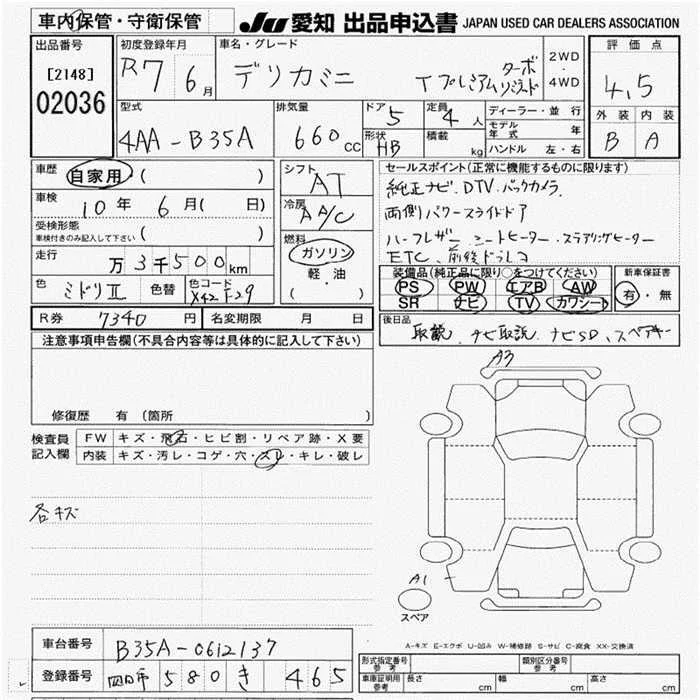 車内保管・守衛保管
JU 愛知 出品申込書 JAPAN USED CAR DEALERS ASSOCIATION
出品番号 [2148] 02036
初度登録年月 R7 6月
車名・グレード デリカミニ Tプレミアム ターボ 2WD・4WD
評価点 4.5
外装 内装
B A
型式 4AA-B35A
排気量 660 cc
ドア 5
定員 4 人
形状 HB
積載 kg
ディーラー・並行
モデル年式 年
ハンドル 左・右
車歴 自家用 ( )
車検 10年 6月( 日)
受検形態
車検付きのみ記入して下さい ( )
走行 万3千500km
色 ミドリII 色替 色コード X42 F29
シフト AT
冷房 AA/C
燃料 ガソリン
軽・油
( )
セールスポイント(正常に機能するものに限ります)
純正ナビ、DTV、バックカメラ、
両側パワースライドドア
ハーフレザー シートヒーター・ステアリングヒーター
ETC、前後ドラレコ
装備品(純正品に限り○をつけてください) 新車保証書
PS PW エアB AW 有・無
SR ナビ TV カワシート
R券 7340円 名変期限 月 日
後日品 取説、ナビ取説、ナビSD、スペアキー
注意事項申告欄(不具合内容等は具体的に記入して下さい)
修復歴 有(箇所 )
検査員記入欄 FW キズ・飛石・ヒビ割・リペア跡・X要
内装 キズ・汚レ・コゲ・穴・スレ・キレ・破レ
各キズ
A3
A1
スペア
A-キズ E-エクボ U-凹み W-補修跡 S-サビ C-腐食 XX-交換済
車台番号 B35A-0612137
登録番号 四日市 580 き 465
形式指定番号 参考 類別区分番号 参考
車庫証明用 参考 長さ cm 幅 cm 高さ cm